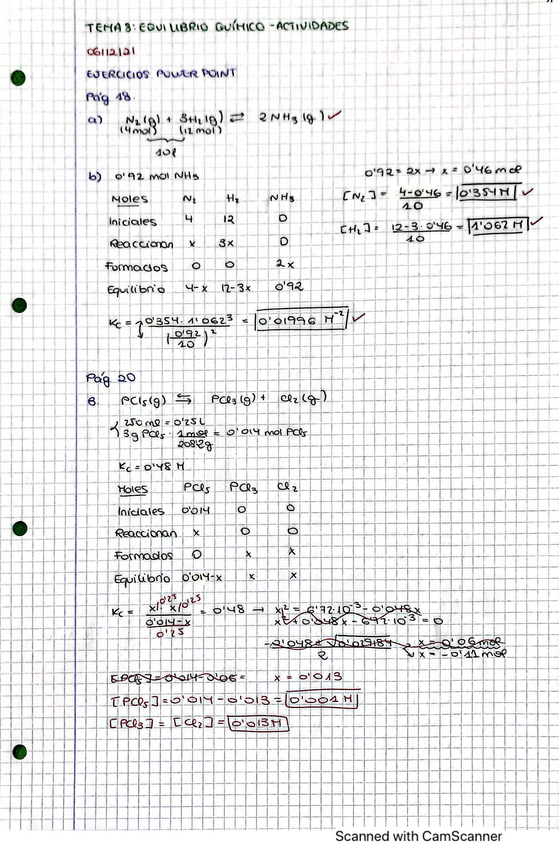 TEMA 8: EQUILIBRIO QUÍMICO - ACTIVIDADES
06/12/21
EJERCICIOS POWER POINT
Pág 18.
a) N₂(g) + 3H₂(g) ⇌ 2NH₃(g) ✓
(4mol) (12mol)
10l
b) 0'92 mol NH₃
0'92 = 2x → x = 0'46 mol
[N₂] = 4-0'46/10 = 0'354 M ✓
[H₂] = 12-3·0'46/10 = 1'062 M ✓
Moles N₂ H₂ NH₃
Iniciales 4 12 0
Reaccionan x 3x 0
Formados 0 0 2x
Equilibrio 4-x 12-3x 0'92
Kc = 0'354 · 1'062³/(0'92/10)² = 0'01996 M⁻² ✓
Pág 20
8. PCl₅(g) ⇆ PCl₃(g) + Cl₂(g)
250 ml = 0'25 L
3g PCl₅ · 1mol/208'2g = 0'014 mol PCl₅
Kc = 0'48 M
Moles PCl₅ PCl₃ Cl₂
Iniciales 0'014 0 0
Reaccionan x 0 0
Formados 0 x x
Equilibrio 0'014-x x x
Kc = x/0'25 · x/0'25 / 0'014-x/0'25 = 0'48 → x² = 6'72·10⁻³ - 0'048x
x² + 0'048x - 6'72·10⁻³ = 0
2
x = 0'06 mol
x = -0'11 mol
[PCl₅] = 0'014-0'06 = x = 0'013
[PCl₅] = 0'014 - 0'013 = 0'001 M
[PCl₃] = [Cl₂] = 0'013 M
Scanned with CamScanner